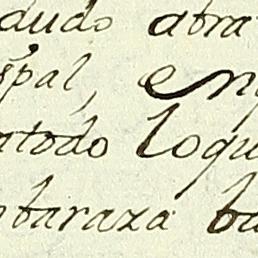 dudo atra
spal, en
atodo loqu
ntaraza ta